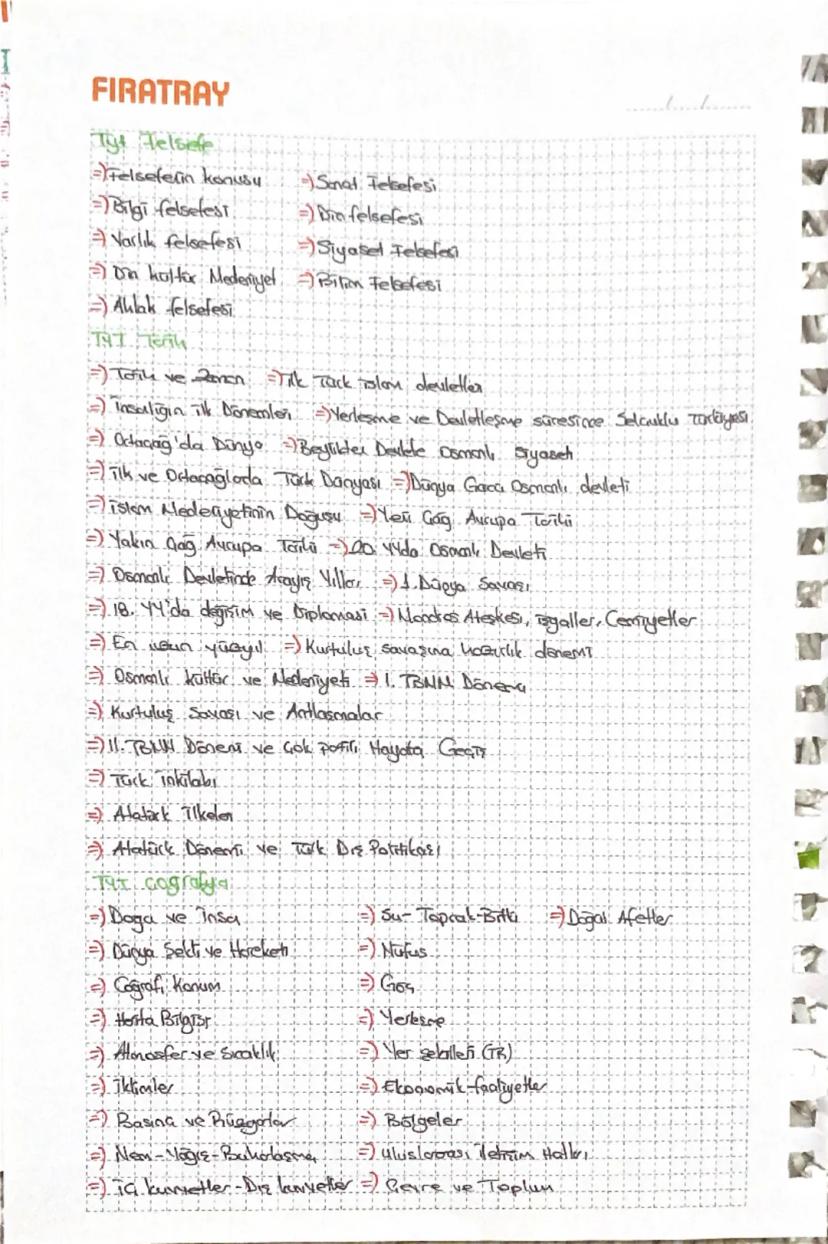 FIRATRAY
..../..../........
Tyt Felsefe
=) Felsefenin konusu =) Sanat Felsefesi
=) Bilgi felsefesi =) Din felsefesi
=) Varlık felsefesi =) Siyaset Felsefesi
=) Din kültür Medeniyet =) Bilim Felsefesi
=) Ahlak felsefesi
TYT Tarih
=) Tarih ve Zaman =) İlk Türk islam devletler
=) İnsanlığın ilk Dönemleri =) Yerleşme ve Devletleşme süresince Selçuklu Türkiyesi
=) Ortaçağ'da Dünya =) Beylikten Devlete Osmanlı Siyaseti
=) ilk ve Ortaçağlarda Türk Dünyası =) Dünya Gücü Osmanlı devleti
=) islam Medeniyetinin Doğuşu =) Yeni Çağ Avrupa Tarihi
=) Yakın Çağ Avrupa Tarihi =) 20. YYda Osmanlı Devleti
=) Osmanlı Devletinde Arayış Yılları =) 1. Dünya Savaşı
=) 18. YY'da değişim ve Diplomasi =) Mondros Ateşkesi, işgaller, Cemiyetler
=) En uzun yüzyıl =) Kurtuluş savaşına hazırlık dönemi
=) Osmanlı kültür ve Medeniyeti =) 1. TBMM Dönemi
=) Kurtuluş Savaşı ve Antlaşmalar
=) II. TBMM Dönemi ve Çok partili Hayata Geçiş
=) Türk inkılabı
=) Atatürk İlkeleri
=) Atatürk Dönemi ve Türk Dış Politikası
TYT Coğrafya
=) Doğa ve İnsan =) Su-Toprak-Bitki =) Doğal Afetler
=) Dünya Şekli ve Hareketi =) Nüfus
=) Coğrafi Konum =) Göç
=) Harita Bilgisi =) Yerleşme
=) Atmosfer ve Sıcaklık =) Yer şekilleri (TR)
=) İklimler =) Ekonomik faaliyetler
=) Basınç ve Rüzgarlar =) Bölgeler
=) Nem-Yağış-Buharlaşma =) Uluslararası iletişim Hatları
=) iç kuvvetler-Dış kuvvetler =) Çevre ve Toplum